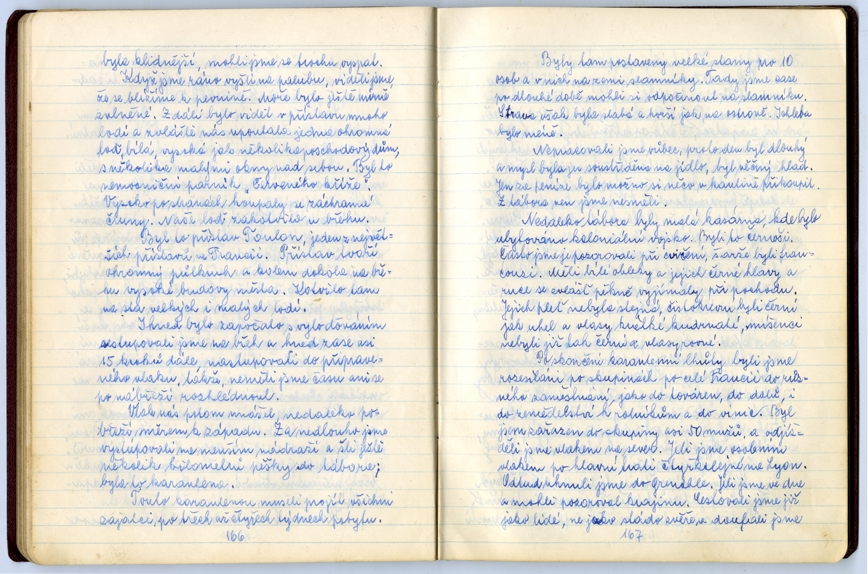 byla klidnější, mohli jsme se trochu vyspat.
Když jsme ráno vyšli na palubu, viděli jsme,
že se blížíme k pevnině. Moře bylo ještě mírně
zvlněné. Z dáli bylo vidět v přístavu mnoho
lodí a zvláště nás upoutala jedna ohromná
loď, bílá, vysoká jak několikaposchodový dům,
s několika malými okny nad sebou. Byl to
nemocniční parník „Červeného kříže".
Vysoko po stranách houpaly se záchranné
čluny. Naší lodí zakotvilo u břehu.
Byl to přístav Toulon, jeden z největ=
ších přístavů ve Francii. Přístav tvoří
ohromný půlkruh a kolem dokola na bře=
hu vysoké budovy města. Kotvilo tam
na sta velkých i malých lodí.
Ihned bylo započato s vyloďováním
sestupovali jsme na břeh a hned zase asi
15 kroků dále, nastupovali do připrave=
ného vlaku, takže, neměli jsme čas ani se
po nábřeží rozhlédnout.
Vlak nás potom unášel, nedaleko po=
břeží, směrem k západu. Za nedlouho jsme
vystupovali na menším nádraží a šli ještě
několik kilometrů pěšky do tábora;
byla to karanténa.
Touto karanténou museli projít všichni
zajatci, po třech až čtyřech týdnech pobytu.
166
Byly tam postaveny velké stany pro 10
osob a v nich na zemi slamníky. Tady jsme zase
po dlouhé době mohli si odpočinout na slamníku.
Strava však byla slabá a horší jak na ostrově. I chleba
bylo méně.
Nepracovali jsme vůbec, proto den byl dlouhý
a mysl byla jen soustředěna na jídlo, byl věčný hlad.
Jen za peníze bylo možno si něco v kantýně přikoupit.
Z tábora ven jsme nesměli.
Nedaleko tábora byly malá kasárna, kde bylo
ubytováno koloniální vojsko. Byli to černoši.
Často jsme je pozorovali při cvičení, šarže byli fran=
couzi. Měli bílé obleky a jejich černé hlavy a
ruce se zvlášť pěkně vyjímaly při pochodu.
Jejich pleť nebyla stejná, čistokrevní byli černí
jak uhel a vlasy krátké kudrnaté, míšenci
nebyli již tak černí a vlasy rovné.
Po skončení karantenní lhůty byli jsme
rozesláni po skupinách po celé Francii do růz=
ného zaměstnání, jako do továren, do dolů, i
do zemědělství k rolníkům a do vinic. Byl
jsem zařazen do skupiny asi 50 mužů, a odjíž=
děli jsme vlakem na sever. Jeli jsme osobním
vlakem po hlavní trati čtyřkolejné na Lyon.
Odtud uhnuli jsme do Grenoble. Jeli jsme ve dne
a mohli pozorovat krajinu. Cestovali jsme již
jako lidé, ne jako stádo zvěře a doufali jsme
167